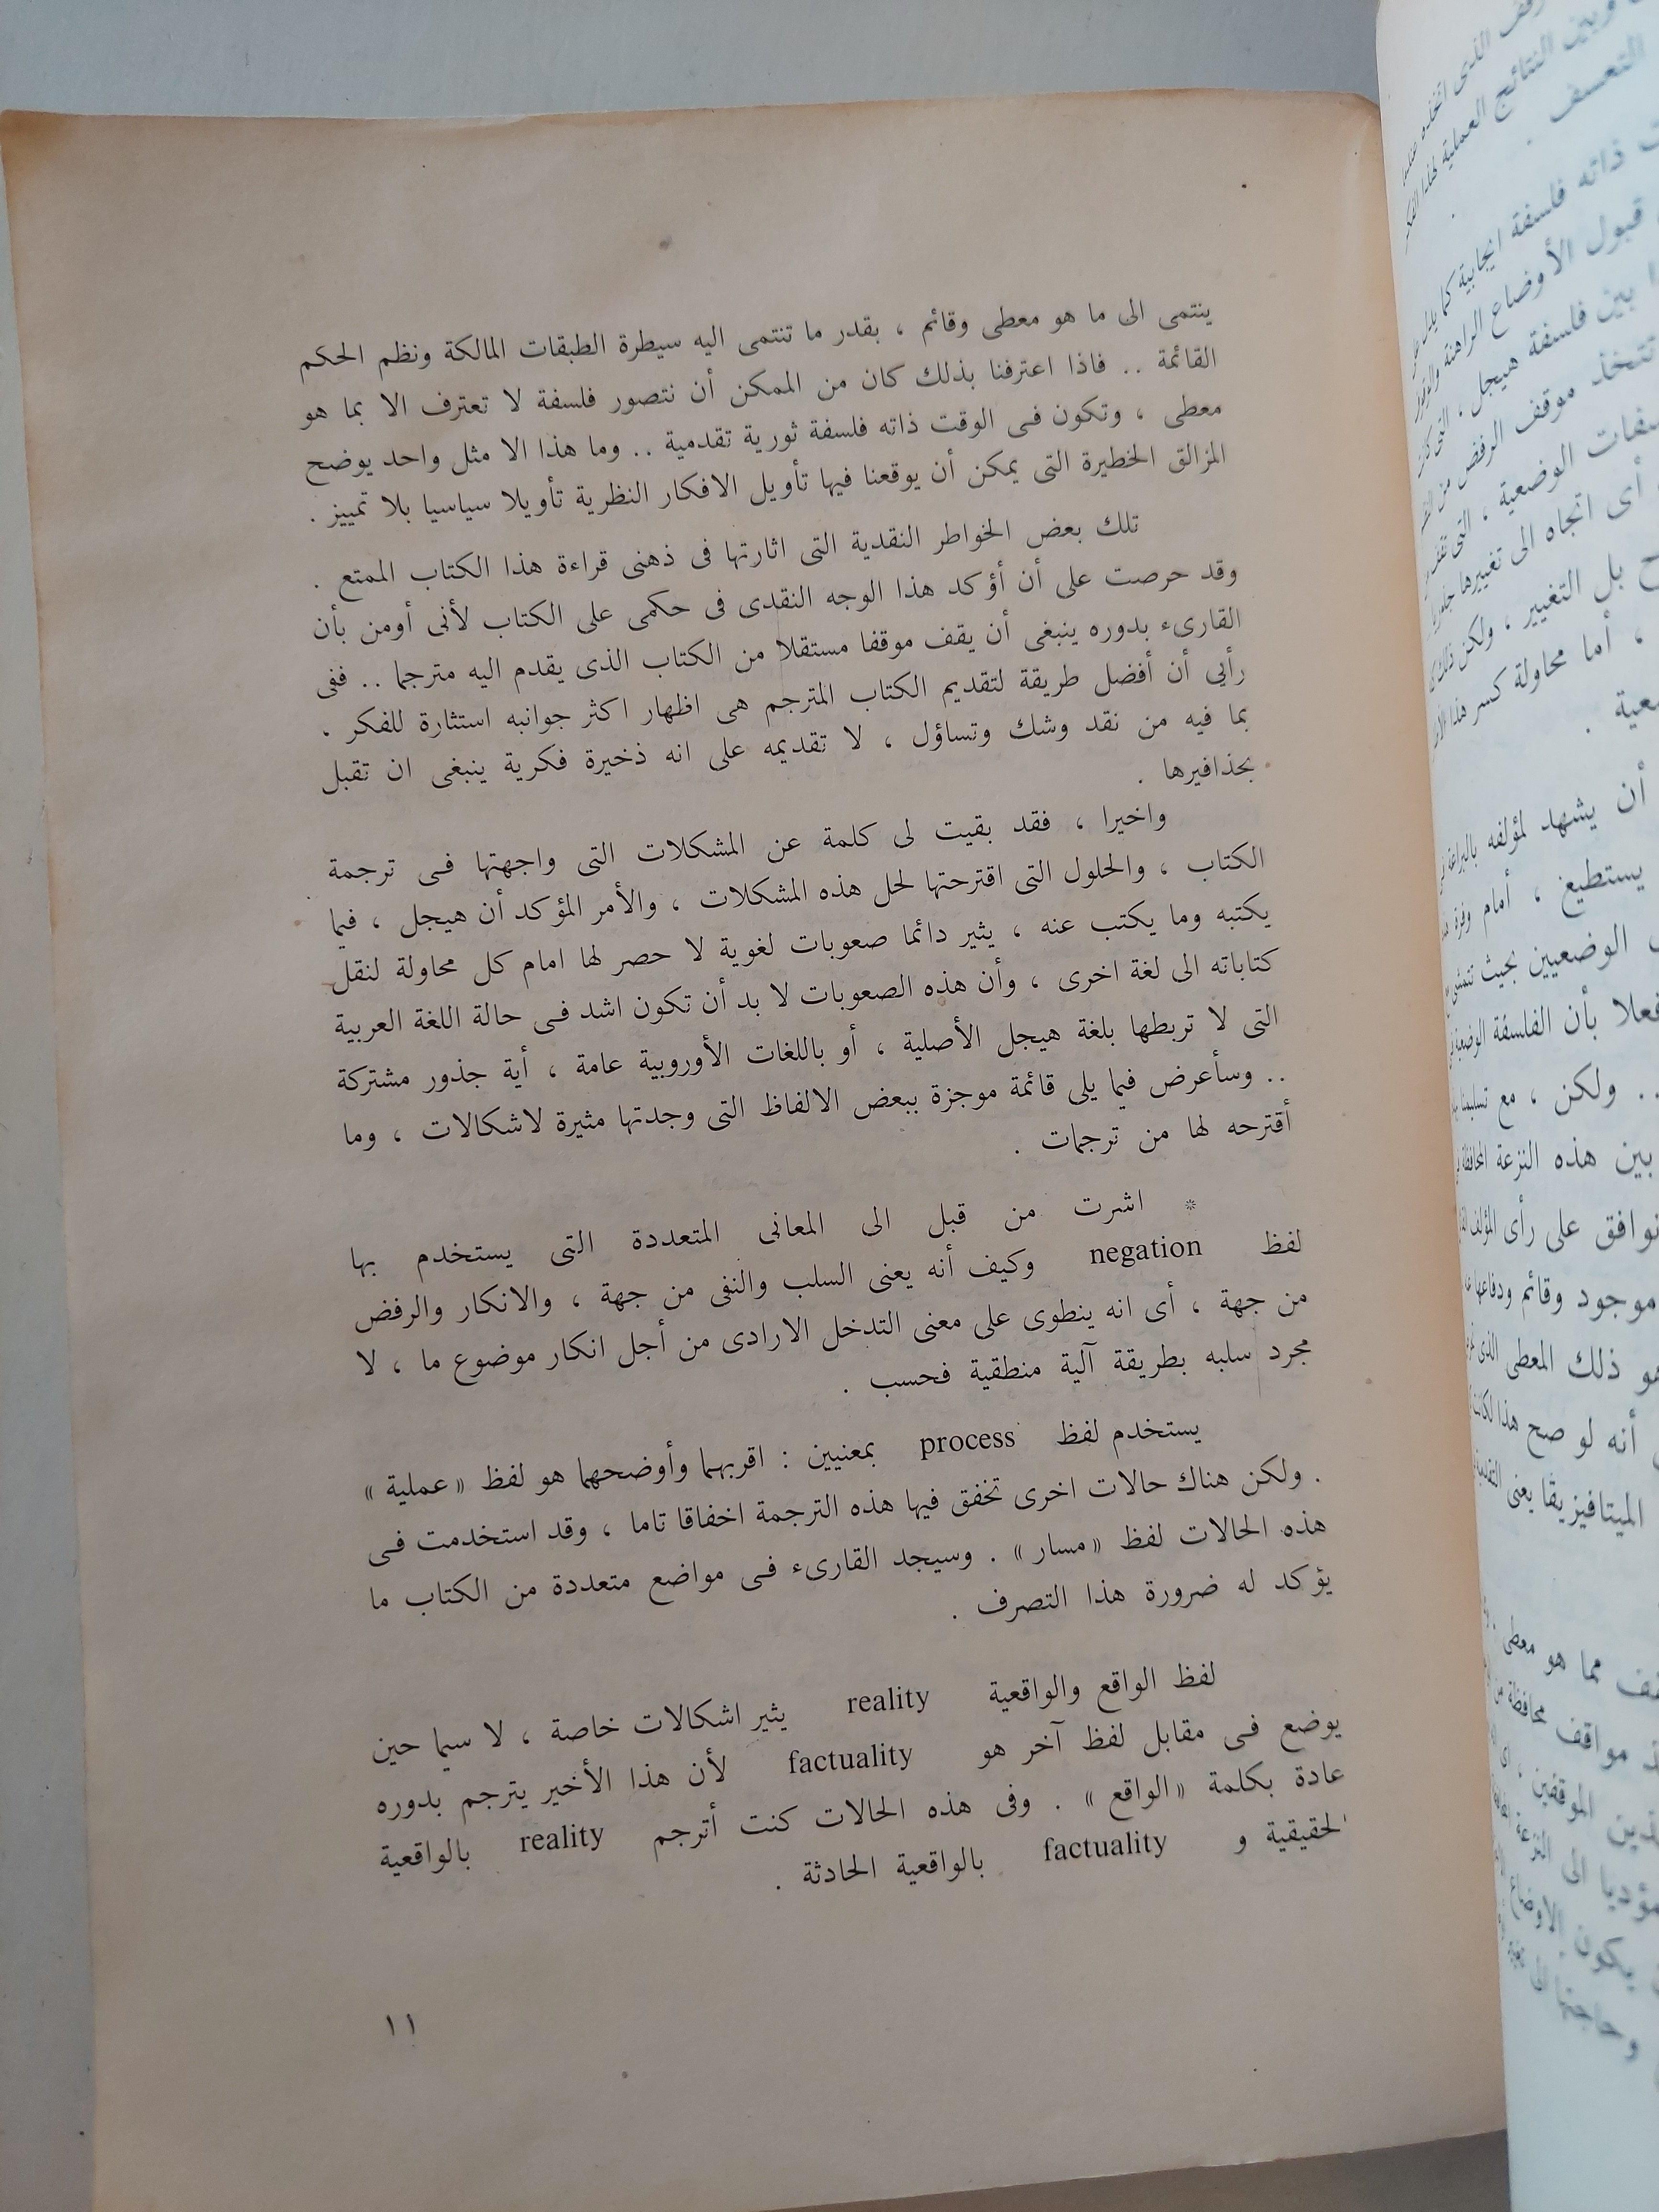 ينتمى الى ما هو معطى وقائم ، بقدر ما تنتمى اليه سيطرة الطبقات المالكة ونظم الحكم
القائمة .. فاذا اعترفنا بذلك كان من الممكن أن نتصور فلسفة لا تعترف الا بما هو
معطى ، وتكون فى الوقت ذاته فلسفة ثورية تقدمية .. وما هذا الا مثل واحد يوضح
المزالق الخطيرة التى يمكن أن يوقعنا فيها تأويل الافكار النظرية تأويلا سياسيا بلا تمييز .
تلك بعض الخواطر النقدية التى اثارتها فى ذهنى قراءة هذا الكتاب الممتع .
وقد حرصت على أن أؤكد هذا الوجه النقدى فى حكمى على الكتاب لأنى أومن بأن
القارىء بدوره ينبغى أن يقف موقفا مستقلا من الكتاب الذى يقدم اليه مترجما .. ففى
رأيى أن أفضل طريقة لتقديم الكتاب المترجم هى اظهار اكثر جوانبه استثارة للفكر ،
بما فيه من نقد وشك وتساؤل ، لا تقديمه على انه ذخيرة فكرية ينبغى ان تقبل
بحذافيرها .
واخيرا ، فقد بقيت لى كلمة عن المشكلات التى واجهتها فى ترجمة
الكتاب ، والحلول التى اقترحتها لحل هذه المشكلات ، والأمر المؤكد أن هيجل ، فيما
يكتبه وما يكتب عنه ، يثير دائما صعوبات لغوية لا حصر لها امام كل محاولة لنقل
كتاباته الى لغة اخرى ، وأن هذه الصعوبات لا بد أن تكون اشد فى حالة اللغة العربية
التى لا تربطها بلغة هيجل الأصلية ، أو باللغات الأوروبية عامة ، أية جذور مشتركة
.. وسأعرض فيما يلى قائمة موجزة ببعض الالفاظ التى وجدتها مثيرة لاشكالات ، وما
أقترحه لها من ترجمات .
* اشرت من قبل الى المعانى المتعددة التى يستخدم بها
لفظ negation وكيف أنه يعنى السلب والنفى من جهة ، والانكار والرفض
من جهة ، أى انه ينطوى على معنى التدخل الارادى من أجل انكار موضوع ما ، لا
مجرد سلبه بطريقة آلية منطقية فحسب .
يستخدم لفظ process بمعنيين : اقربهما وأوضحهما هو لفظ « عملية »
. ولكن هناك حالات اخرى تخفق فيها هذه الترجمة اخفاقا تاما ، وقد استخدمت فى
هذه الحالات لفظ « مسار » . وسيجد القارىء فى مواضع متعددة من الكتاب ما
يؤكد له ضرورة هذا التصرف .
لفظ الواقع والواقعية reality يثير اشكالات خاصة ، لا سيما حين
يوضع فى مقابل لفظ آخر هو factuality لأن هذا الأخير يترجم بدوره
عادة بكلمة « الواقع » . وفى هذه الحالات كنت أترجم reality بالواقعية
الحقيقية و factuality بالواقعية الحادثة .
١١